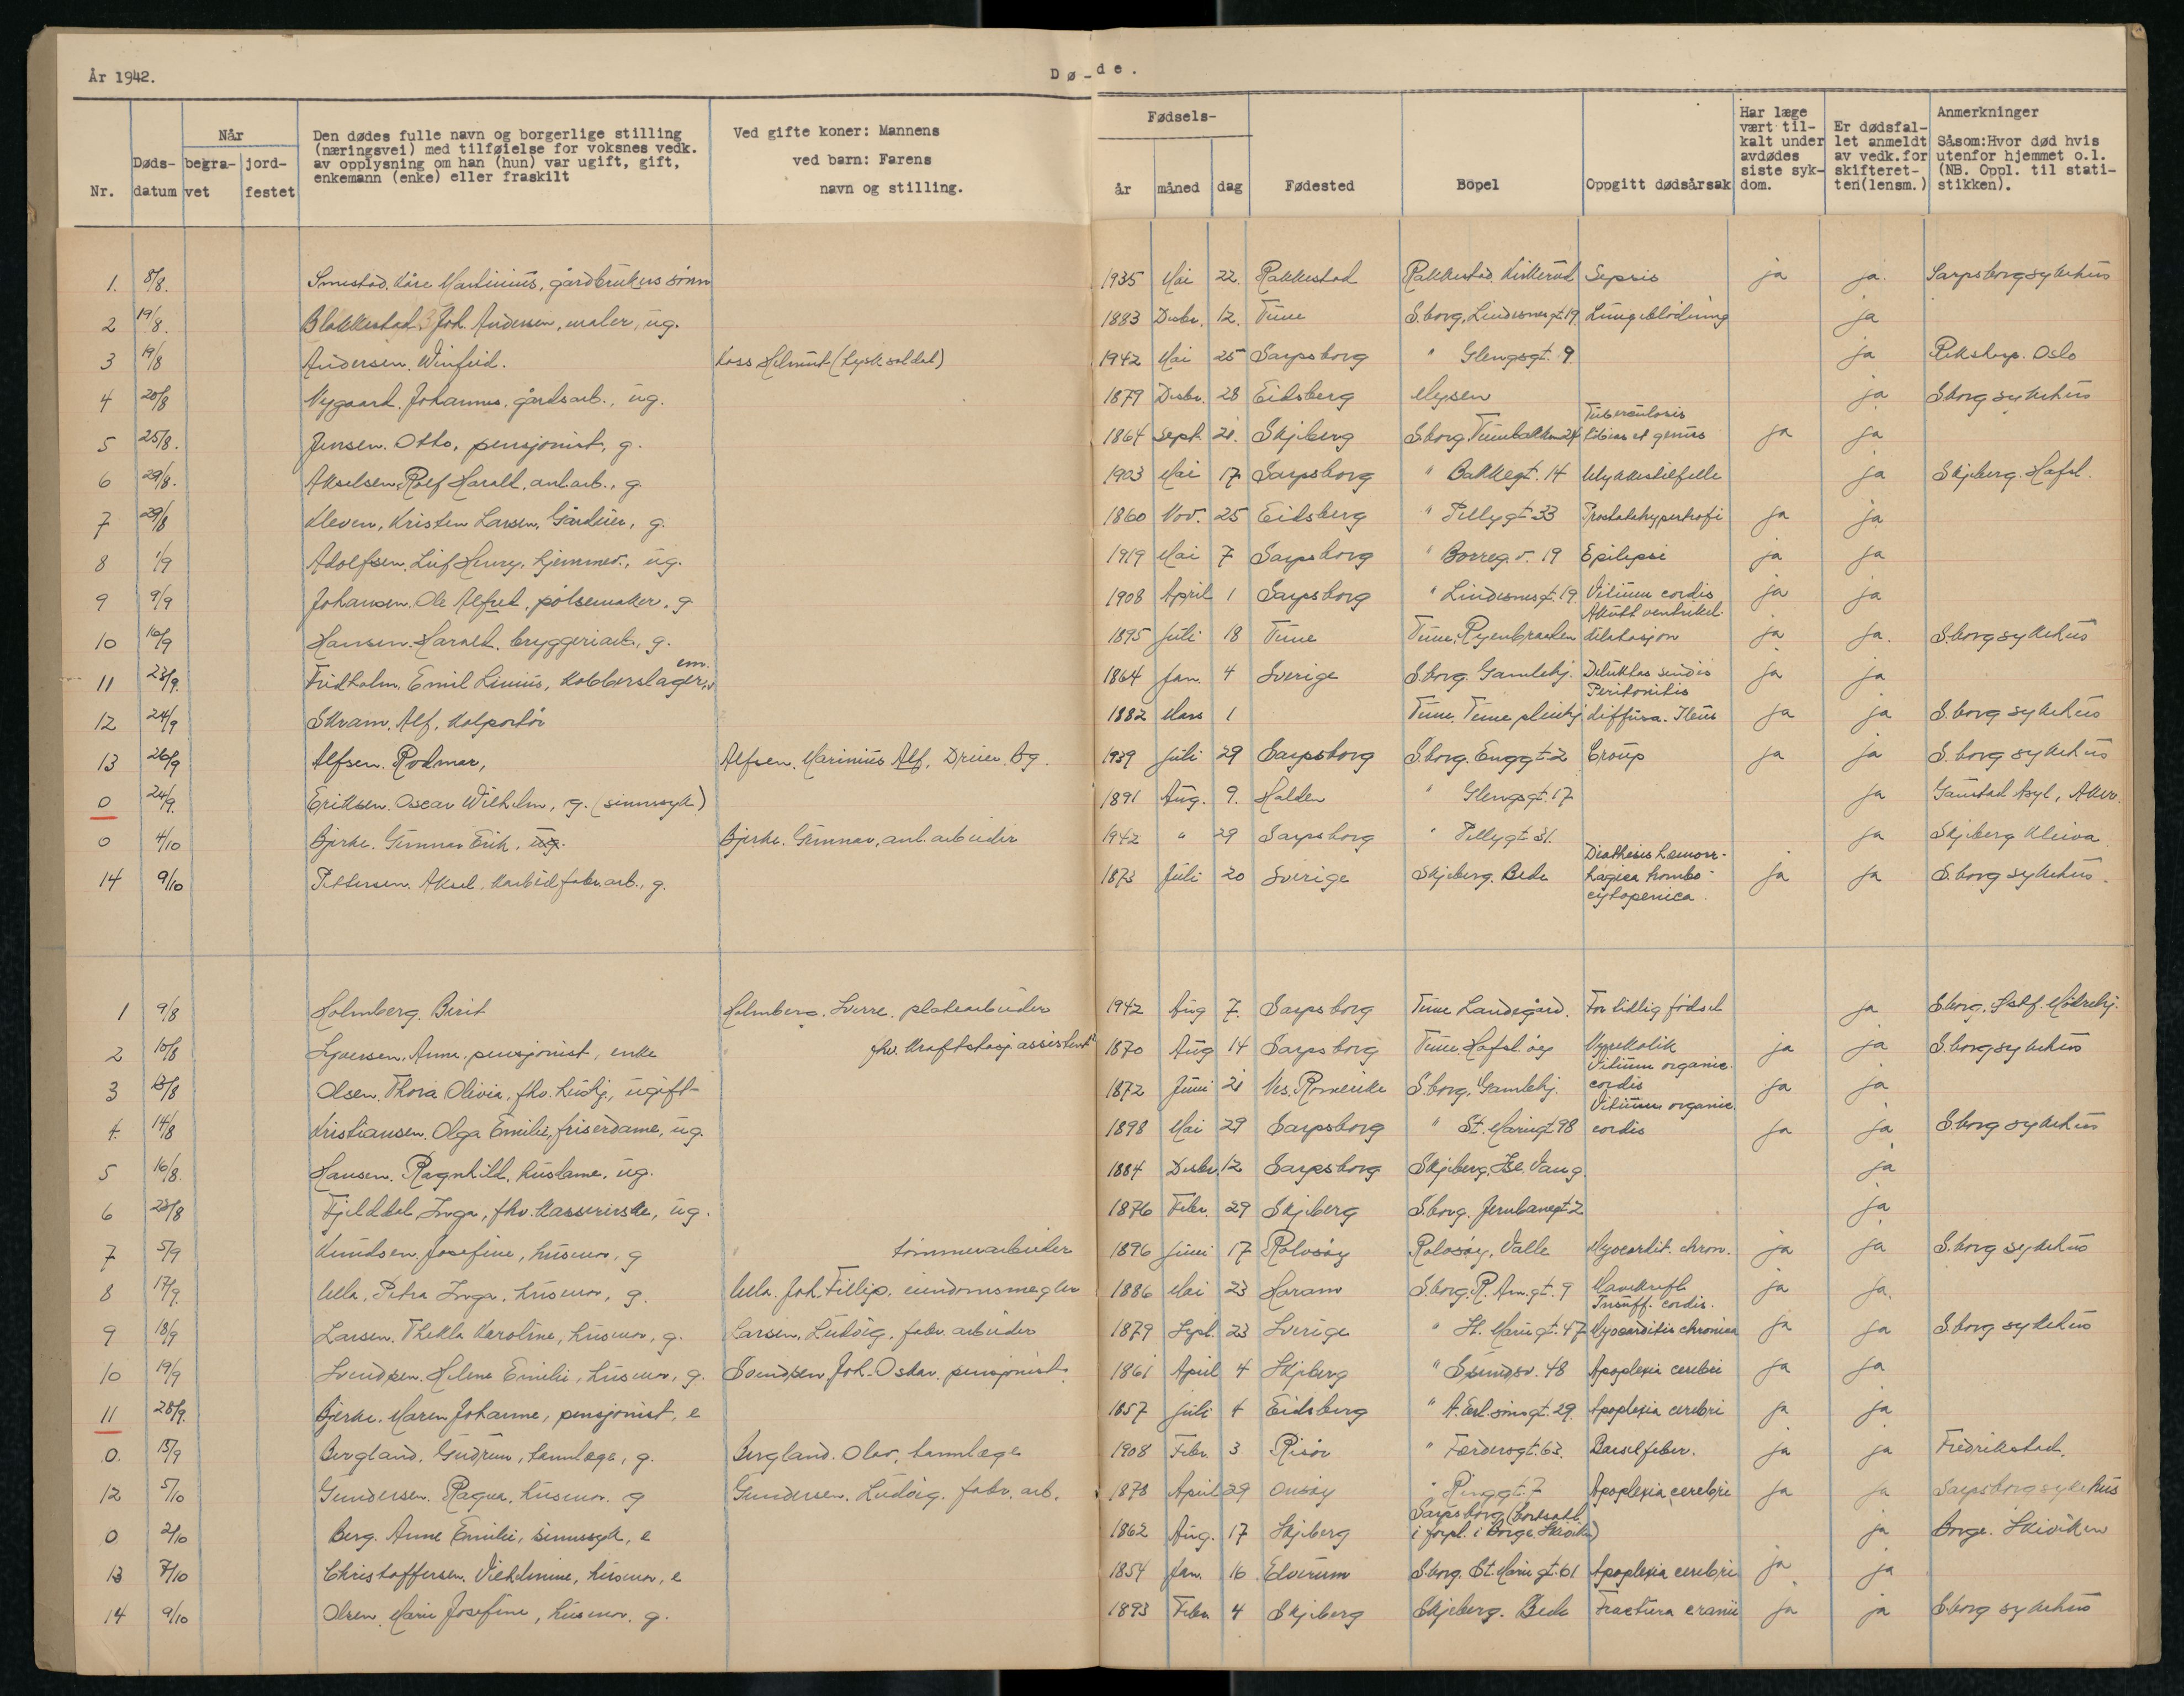 År 1942.
Dø-de.
Nr.
Døds-datum
Når
begra-vet
jord-festet
Den dødes fulle navn og borgerlige stilling
(næringsvei) med tilføielse for voksnes vedk.
av opplysning om han (hun) var ugift, gift,
enkemann (enke) eller fraskilt
Ved gifte koner: Mannens
ved barn: Farens
navn og stilling.
Fødsels-
år måned dag
Fødested
Bopel
Oppgitt dødsårsak
Har læge
vært til-
kalt under
avdødes
siste syk-
dom.
Er dødsfal-
let anmeldt
av vedk.for
skifteret-
ten(lensm.)
Anmerkninger
Såsom:Hvor død hvis
utenfor hjemmet o.l.
(NB. Oppl. til stati-
stikken).
1. 8/8. Smestad. Kåre Martinius, gårdbrukers sønn 1935 Mai 22. Rakkestad Rakkestad. Kiskerud Sepsis ja ja. Sarpsborg sykehus
2 19/8. Blakkestad, Joh. Andersen, maler, ug. 1883 Desbr. 12. Tune S.borg, Lindesnesgt. 19. Lungeblødning ja
3 19/8 Andersen. Winfrid. Koss Helmut (tysk soldat) 1942 Mai 25 Sarpsborg " Glengsgt. 9 ja Rikshosp. Oslo
4 20/8 Nygaard. Johannes, gårdsarb., ug. 1879 Desbr. 28 Eidsberg Mysen ja S.borg sykehus
5 25/8. Jensen. Otto, pensjonist, g. 1864 Sept. 21. Skjeberg S.borg. Tunebakken 24 Tuberculosis et genus ja ja
6 29/8. Akselsen, Rolf Harald, anl.arb., g. 1903 Mai 17 Sarpsborg " Bakkegt. 14 Ulykkestilfelle ja Skjeberg. Hafsl.
7 29/8 Kleven, Kristen Larsen, Gårdeier, g. 1860 Nov. 25 Eidsberg " Pellygt 33 Prostatahypertrofi ja ja
8 1/9 Adolfsen. Leif Henry, hjemmev., ug. 1919 Mai 7 Sarpsborg " Borreg.v. 19 Epilepsi ja ja
9 9/9 Johansen. Ole Alfred, pølsemaker, g 1908 April 1 Sarpsborg " Lindesnesgt. 19 Vitium cordis ja ja
10 16/9 Hansen. Harald. bryggeriarb., g. 1895 Juli 18 Tune Tune, Ryenbraaten Akutt ventrikel-dilatasjon ja ja. S.borg sykehus
11 23/9. Fridholm. Emil Linius, kobberslager, em. 1864 Jan. 4 Sverige S.borg. Gamlehj. ja ja
12 24/9 Skram. Alf, kolportør 1882 Mars 1 Tune. Tune pleiehj Peritonitis diffusa. Ileus ja ja S.borg sykehus
13 26/9 Alfsen. Rodmar, Alfsen. Marinius Alf. 1939 Juli 29 Sarpsborg S.borg. Enggt 2 Croup ja ja S.borg sykehus
0 24/9. Eriksen. Oscar Wilhelm, g. (sinnssyk) 1891 Aug. 9. Halden " Glengsgt. 17 ja Gaustad Asyl, Aker.
0 4/10 Bjerke. Gunnar Erik, ug. Bjerke. Gunnar, anl.arbeider 1942 " 29 Sarpsborg " Pellygt 31. ja Skjeberg Kleiva
14 9/10 Pettersen. Aksel, karbidfabr.arb., g. 1873 Juli 20 Sverige Skjeberg. Bede Diathesis hæmorr-hagica trombo-cytopenica. ja ja S.borg sykehus.
1 9/8 Holmberg. Berit Holmberg. Sverre. platearbeider 1942 Aug 7. Sarpsborg Tune Landegård. For tidlig fødsel ja S.borg. Østf. Mødrehj.
2 10/8 Syversen. Anna, pensjonist, enke " fhv. kraftstasj. assistent 1870 Aug 14 Sarpsborg Tune. Hafsl.øy Nyrekolik ja ja S.borg sykehus
3 13/8 Olsen. Thora Olivia, fhv. hushj., ugift 1872 Juni 21 Nes. Romerike S.borg. Gamlehj. Vitium organic. cordis ja ja
4. 14/8 Kristiansen. Olga Emilie, friserdame, ug. 1898 Mai 29 Sarpsborg " St. Mariegt 98 Vitium organic. cordis ja ja S.borg sykehus
5 16/8. Hansen. Ragnhild, husdame, ug. 1884 Desbr. 12 Sarpsborg Skjeberg. Vang. ja
6 23/8 Fjelddal, Inga, fhv. kassererske, ug. 1876 Febr. 29 Skjeberg S.borg. Jernbanegt 2 ja
7 5/9 Knudsen. Josefine, husmor, g " tømmerarbeider 1896 Juni 17 Rolvsøy Rolvsøy. Valle Myocardit. chron. ja ja S.borg sykehus
8 17/9. Ulla, Petra Inga, husmor, g. Ulla. Joh. Fillip, eiendomsmegler 1886 Mai 23 Haram S.borg. R. Am.gt. 9 Mavekreft ja ja.
9 18/9 Larsen. Thekla Karoline, husmor, g. Larsen. Ludvig. fabr. arbeider 1879 Sept. 23 Sverige " St. Mariegt. 47 Insuff. cordis. Myocarditis chronica ja ja S.borg sykehus
10 19/9 Svendsen. Helene Emilie, husmor, g. Svendsen. Joh. Oskar. pensjonist. 1861 April 4 Skjeberg 48 Apoplexia cerebri ja ja
11 28/9. Bjerke. Maren Johanne, pensjonist, e 1857 Juli 4 Eidsberg 29. Apoplexia cerebri ja ja
0. 15/9 Bergland. Gudrun, tannlege, g. Bergland. Olav, tannlege 1908 Febr. 3 Risør " Færdersgt. 63. Barselfeber. ja ja Fredrikstad.
12 5/10 Gundersen. Ragna, husmor. g Gundersen. Ludvig. fabr. arb. 1878 April 29 Onsøy " Ringgt. 7 Apoplexia cerebri ja ja Sarpsborg sykehus
0 2/10 Berg. Anne Emilie, sinnssyk, e 1862 Aug. 17 Skjeberg Sarpsborg (bortsatt i forpl. i Borge. Skiviken) ja Borge. Skiviken
13 7/10 Christoffersen. Vilhelmine, husmor, e 1854 Jan. 16 Elverum S.borg. St. Marie gt. 61 Apoplexia cerebri ja ja
14 9/10 Olsen. Marie Josefine, husmor. g. 1893 Febr. 4 Skjeberg Skjeberg. Bede Fractura cranii ja ja S.borg sykehus